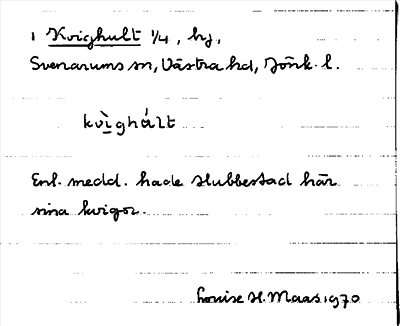 1 Kvighult 1/4, hj,
Svenarums sn, Västra hd, Jönk. l.
kvìghált
Enl. medd. hade Hubbestad här
sina kvigor.
Louise H. Maas 1970